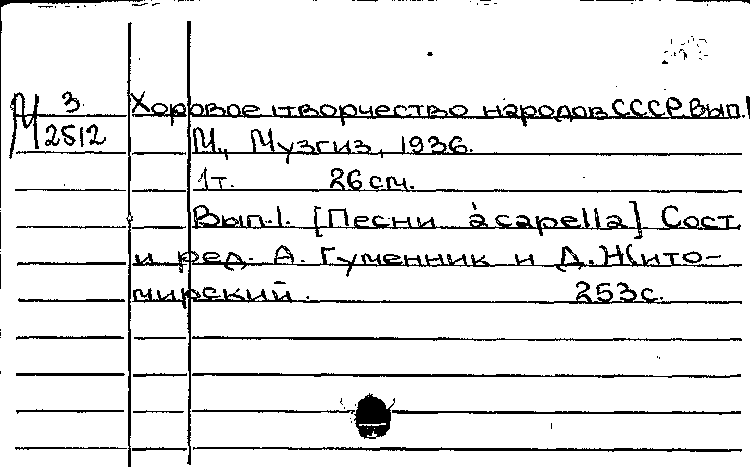 М 3/2512
Хоровое творчество народов СССР. Вып.1
М., Музгиз, 1936.
1т. 26 см.
Вып.1. [Песни à capella] Сост.
и ред. А. Гуменник и Д. Жито-
мирский. 253 с.